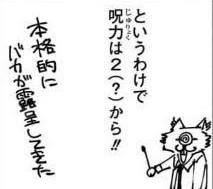 というわけで
呪力は２(？)から!!
じゅりょく
本格的に
バカが露呈してきた